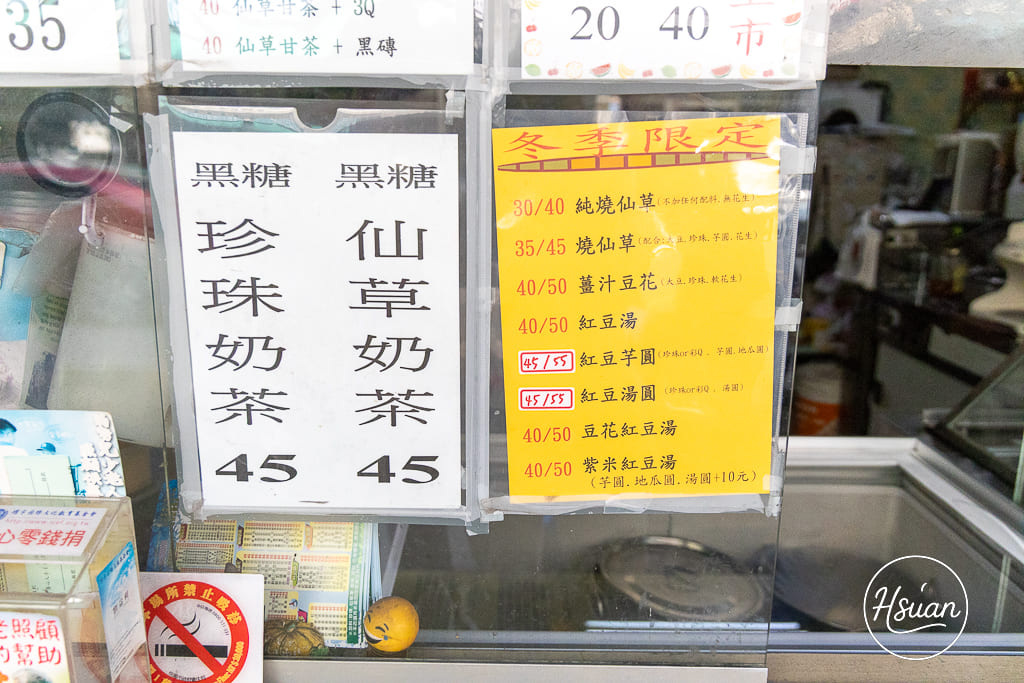 35
40 仙草甘茶 + 3Q
40 仙草甘茶 + 黑磚
20 40
上市
黑糖珍珠奶茶 45
黑糖仙草奶茶 45
冬季限定
30/40 純燒仙草(不加任何配料.無花生)
35/45 燒仙草(配合:大豆.珍珠.芋圓.花生)
40/50 薑汁豆花(大豆.珍珠.軟花生)
40/50 紅豆湯
45/55 紅豆芋圓(珍珠or彩Q . 芋圓.地瓜圓)
45/55 紅豆湯圓(珍珠or彩Q . 湯圓)
40/50 豆花紅豆湯
40/50 紫米紅豆湯
(芋圓.地瓜圓.湯圓+10元)
心零錢捐
老照顧
的幫助
場所禁止吸菸
Hsuan